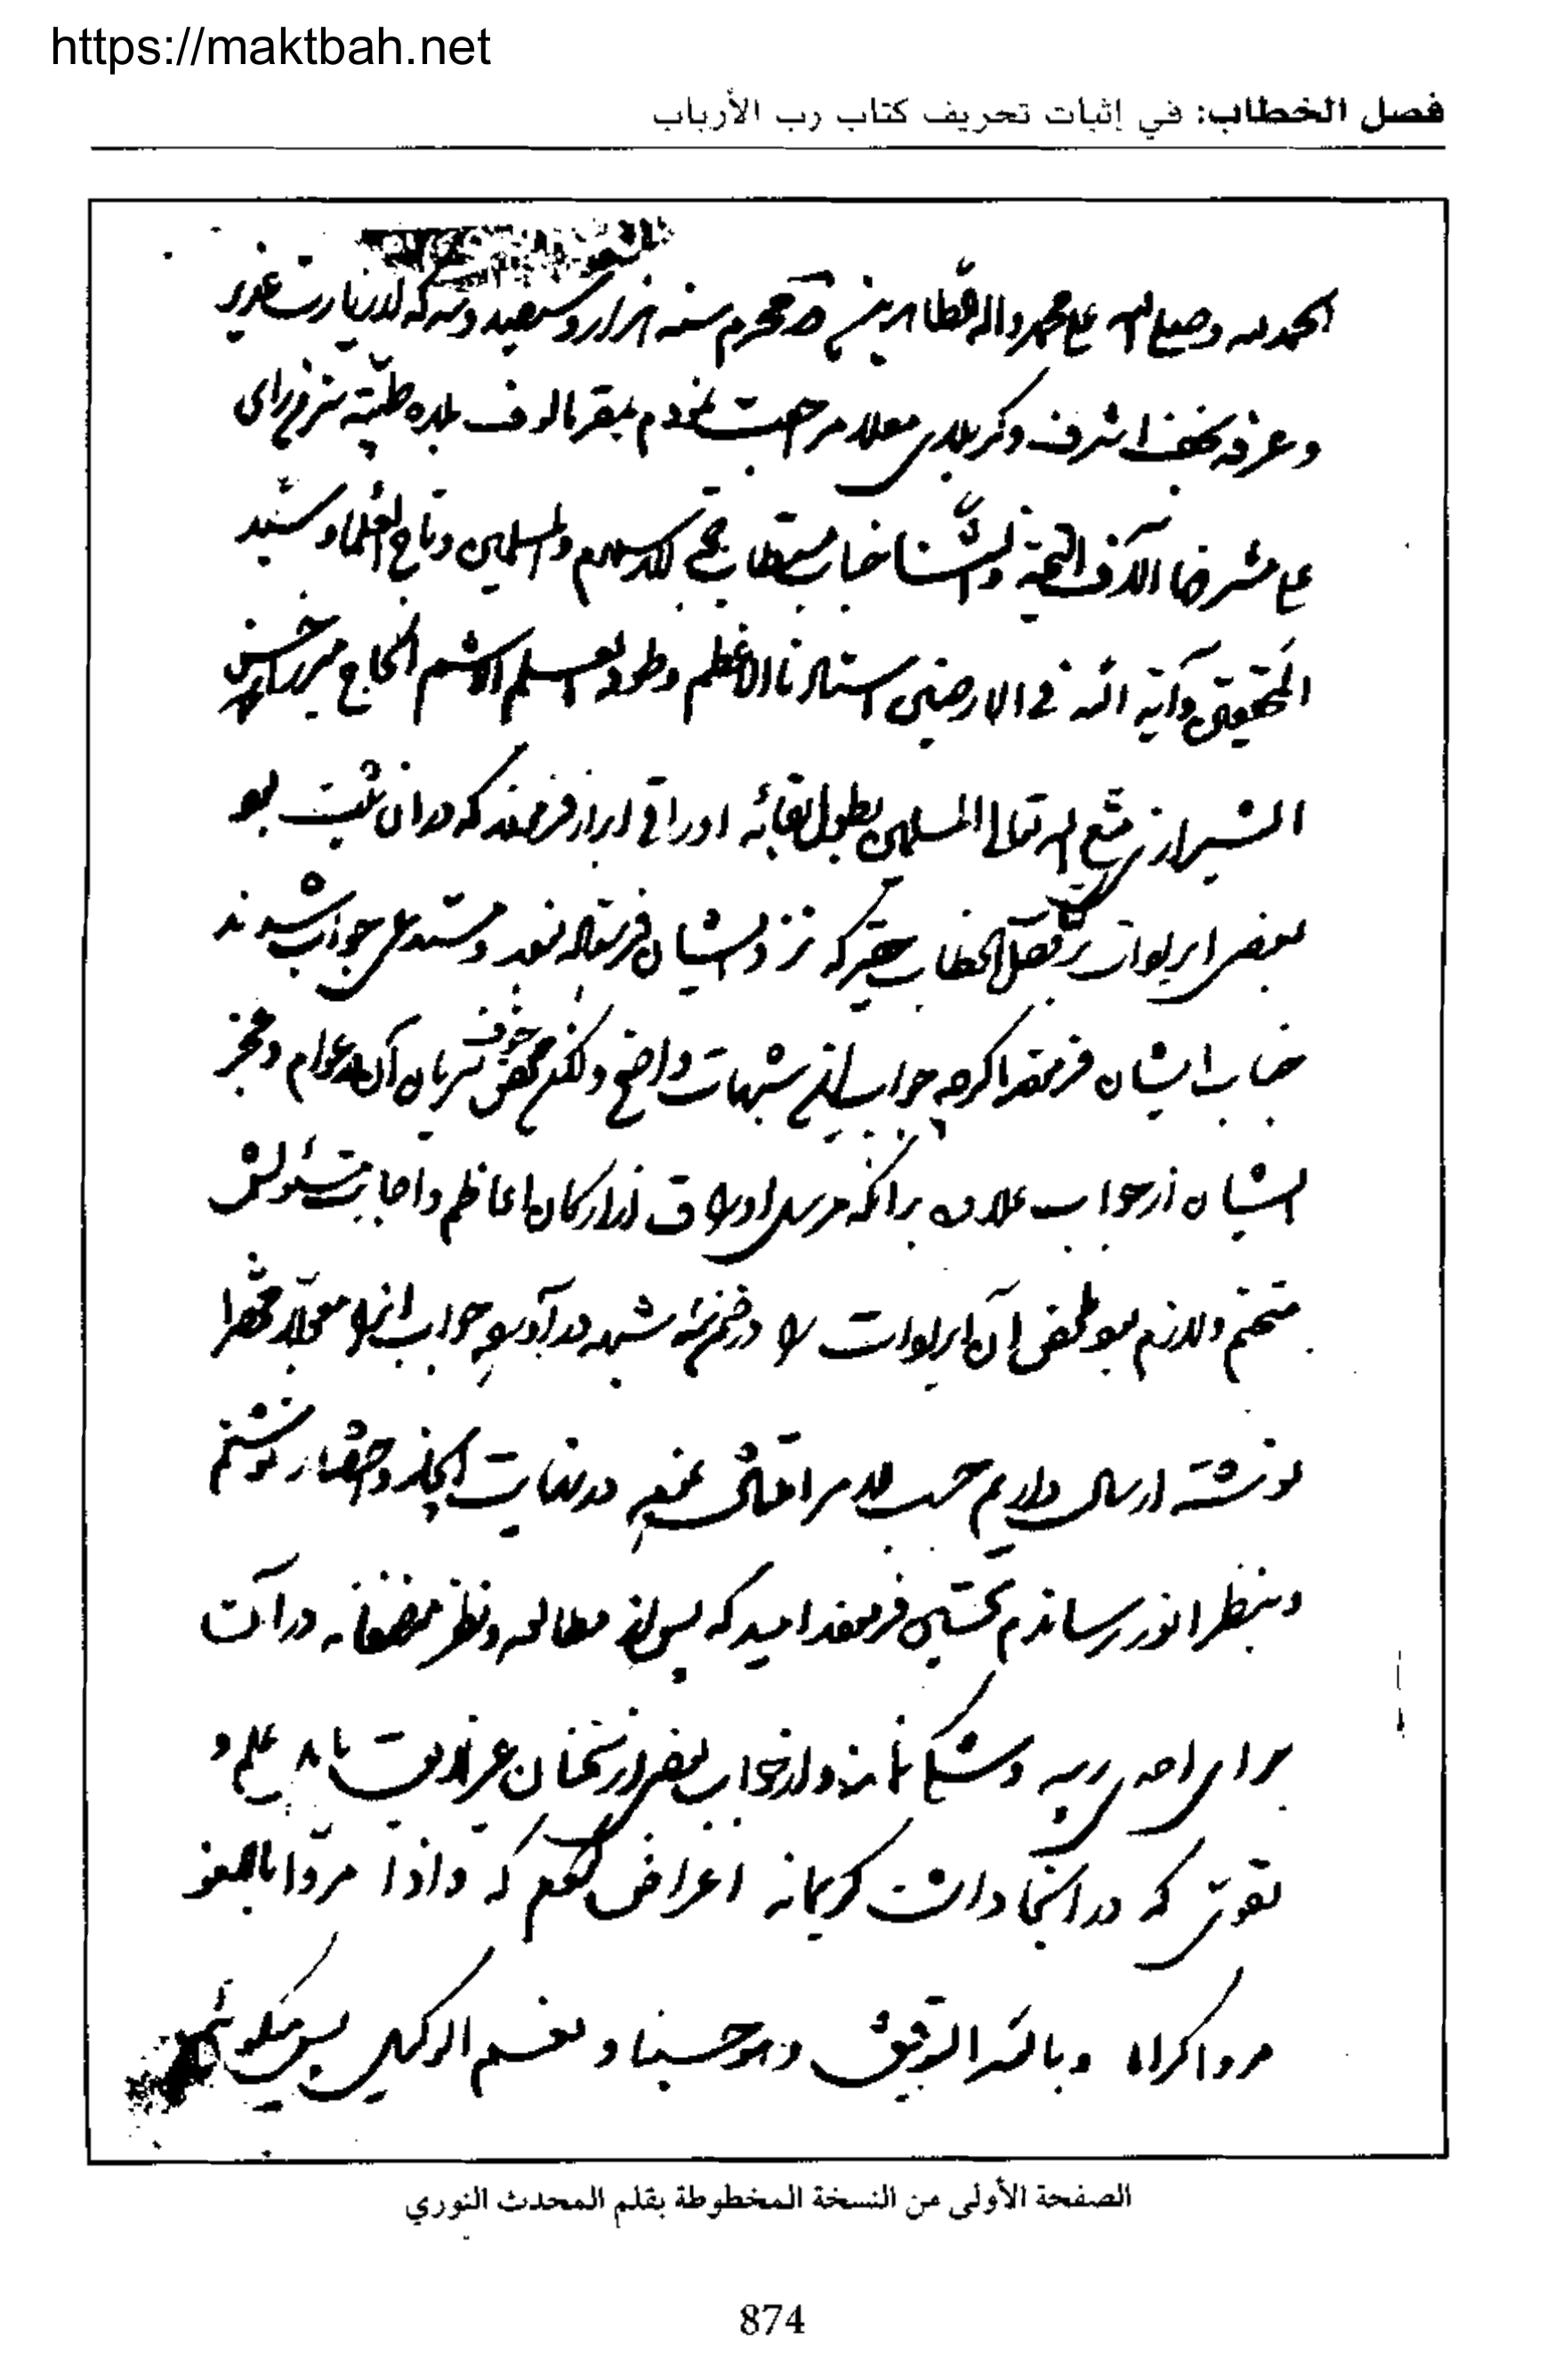 https://maktbah.net
فصل الخطاب: في إثبات تحريف كتاب رب الأرباب
الحمد لله وصلى الله على محمد واله الطاهرين محرم سنه هزار وسيصد وسه كه از زيارت غدير
وعرفه نجف اشرف وكربلاى معلا مراجعت نمودم بمقر مالوف بلده طيبه سر من راى
على مشرفها آلاف التحية والثنا جناب مستطاب حجة الاسلام والمسلمين وتاج العلماء وسيد
المحققين وآية الله في الارضين استادنا الاعظم وطود العلم الاشم الحاج ميرزا محمد حسن
الشيرازى متع الله تعالى المسلمين بطول بقائه اوراقى ابراز فرمودند كه در ان ثبت بود
بعضى ايرادات بر كتاب فصل الخطاب حقير كه نزد ايشان فرستاده بودند ومستدعى جواب شدند
جناب ايشان فرمودند اگرچه جواب اين شبهات واضح ولكن محض خوف سريان آن در عوام وعجز
ايشان از جواب علاوه برانكه مرسل اوراق از اركان اعاظم واجابت مسئولش
متحتم ولازم بود ملخص آن ايرادات را در ضمن سه شبهه در آورده جواب انها را معجلا مختصرا
نوشته ارسال داريم حسب الامر امتثال نموده در نهايت ايجاز واختصار نوشتم
وبنظر انور رساندم تحسين فرمودند اميد كه پس از مطالعه ونظر منصفانه در آن
براى احدى ريبه وشكى نماند وانجناب بعضى از سخنان
تقوى كه در انجا دانست كريمانه اعراض كنم كه واذا مروا باللغو
مروا كراما وبالله التوفيق وهو حسبنا ونعم الوكيل پس ميگوئيم
الصفحة الأولى من النسخة المخطوطة بقلم المحدث النوري
874